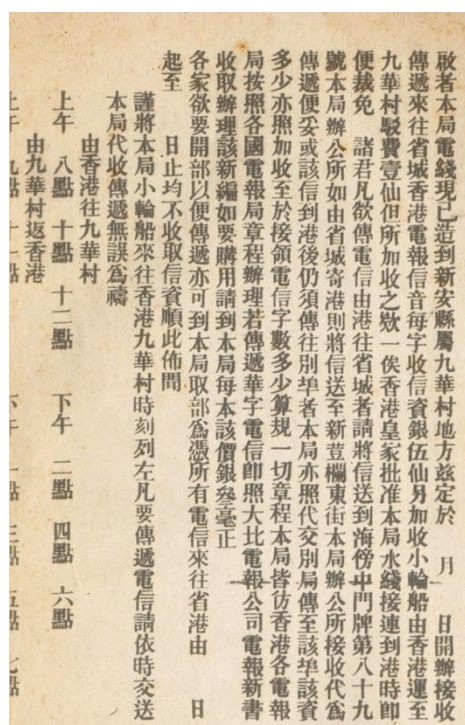 啟者本局電綫現已造到新安縣屬九華村地方茲定於 月 日開辦接收
傳遞來往省城香港電報信音每字收信資銀伍仙另加收小輪船由香港運至
九華村駁費壹仙但所加收之欵一俟香港皇家批准本局水綫接連到港時卽
便裁免 諸君凡欲傳電信由港往省城者請將信送到海傍中門牌第八十九
號本局辦公所如由省城寄港則將信送至新荳欄東街本局辦公所接收代爲
傳遞便妥或該信到港後仍須傳往別埠者本局亦照代交別局傳至該埠該資
多少亦照加收至於接領電信字數多少算規一切章程本局皆彷香港各電報
局按照各國電報局章程辦理若傳遞華字電信卽照大北電報公司電報新書
收取辦理該新編如要購用請到本局每本該價銀叄毫正
各家欲要開部以便傳遞亦可到本局取部爲憑所有電信來往省港由 日
起至 日止均不收取信資順此佈聞
謹將本局小輪船來往香港九華村時刻列左凡要傳遞電信請依時交送
本局代收傳遞無誤爲禱
由香港往九華村
上午 八點 十點 十二點 下午 二點 四點 六點
由九華村返香港
上午 九點 十一點 下午 一點 三點 五點 七點